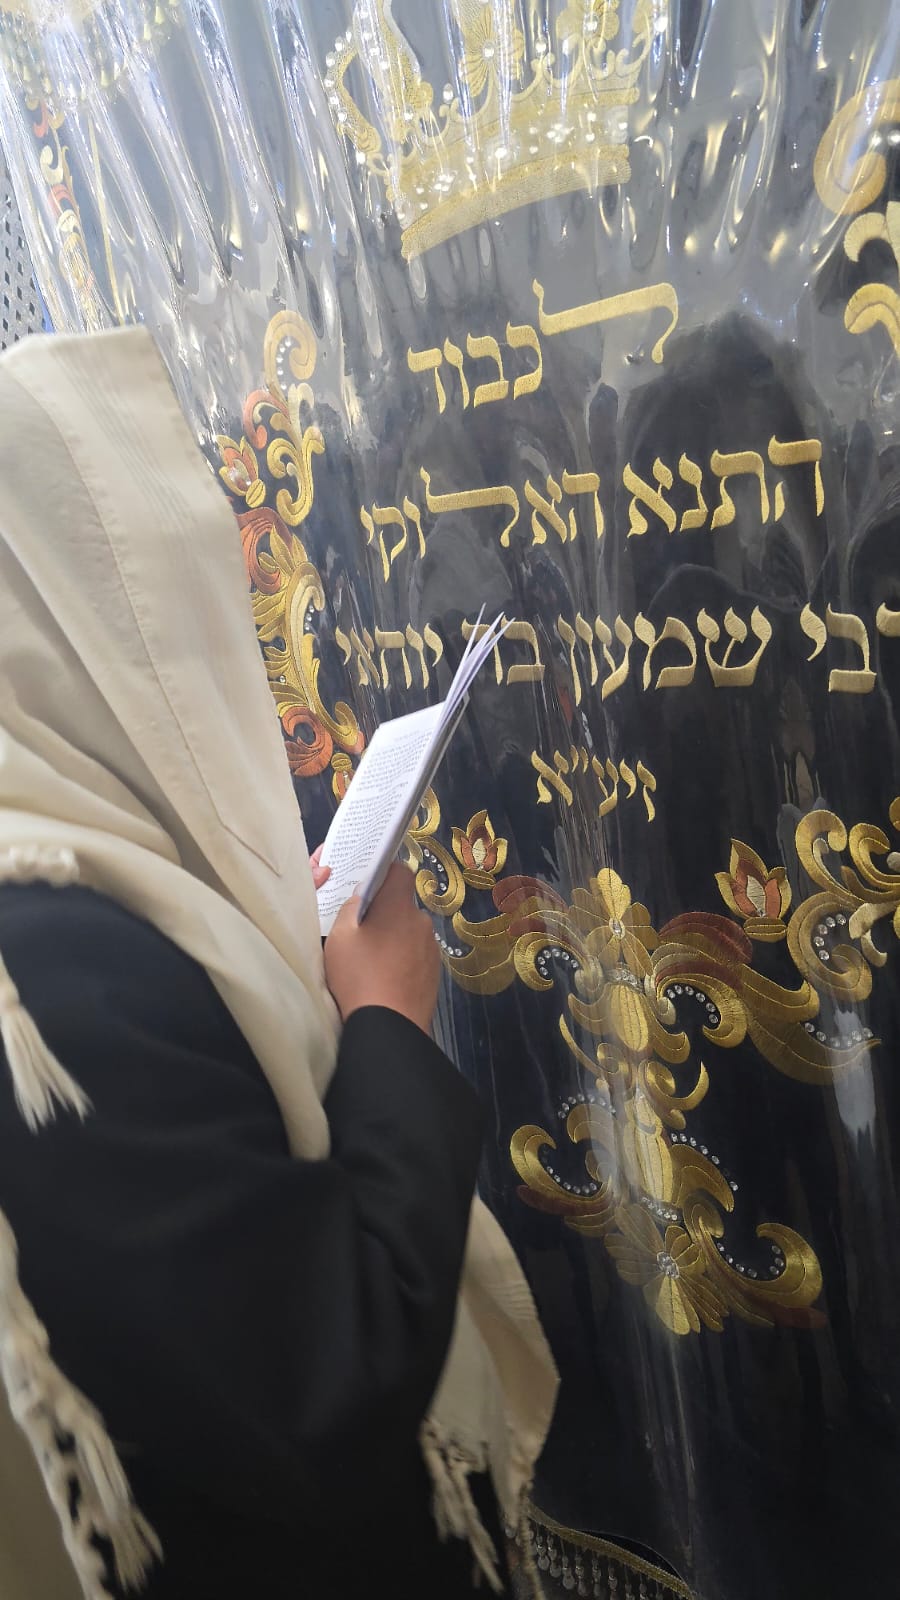 לכבוד
התנא האלוקי
רבי שמעון בר יוחאי
זיע״א